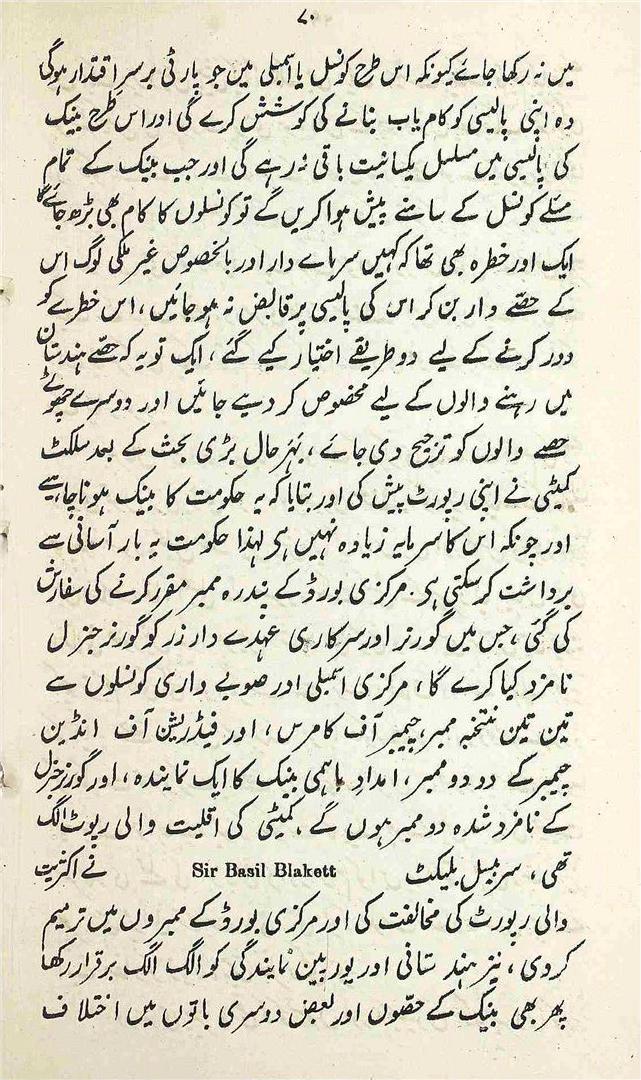 ۷۰
میں نہ رکھا جائے کیونکہ اس طرح کونسل یا اسمبلی میں جو پارٹی برسر اقتدار ہوگی
وہ اپنی پالیسی کو کام یاب بنانے کی کوشش کرے گی اور اس طرح بینک
کی پالیسی میں مسلسل یکسانیت باقی نہ رہے گی اور جب بینک کے تمام
مسئلے کونسل کے سامنے پیش ہوا کریں گے تو کونسلوں کا کام بھی بڑھ جائے گا
ایک اور خطرہ بھی تھا کہ کہیں سرماے دار اور بالخصوص غیر ملکی لوگ اس
کے حصّے دار بن کر اس کی پالیسی پر قابض نہ ہو جائیں، اس خطرے کو
دور کرنے کے لیے دو طریقے اختیار کیے گئے، ایک تو یہ کہ حصّے ہندستان
میں رہنے والوں کے لیے مخصوص کر دیے جائیں اور دوسرے چھوٹے
حصے والوں کو ترجیح دی جائے، بہرحال بڑی بحث کے بعد سلکٹ
کمیٹی نے اپنی رپورٹ پیش کی اور بتایا کہ یہ حکومت کا بینک ہونا چاہیے
اور چونکہ اس کا سرمایہ زیادہ نہیں ہی لہٰذا حکومت یہ بار آسانی سے
برداشت کرسکتی ہی۔ مرکزی بورڈ کے پندرہ ممبر مقرر کرنے کی سفارش
کی گئی، جس میں گورنر اور سرکاری عہدے دار زر کو گورنر جنرل
نامزد کیا کرے گا، مرکزی اسمبلی اور صوبے داری کونسلوں سے
تین تین منتخبہ ممبر، چیمبر آف کامرس، اور فیڈریشن آف انڈین
چیمبر کے دو دو ممبر، امدادِ باہمی بینک کا ایک نمایندہ، اور گورنر جنرل
کے نامزد شدہ دو ممبر ہوں گے۔ کمیٹی کی اقلیت والی رپوٹ الگ
تھی، سر بیسل بلیکٹ Sir Basil Blakett نے اکثریت
والی رپورٹ کی مخالفت کی اور مرکزی بورڈ کے ممبروں میں ترمیم
کردی، نیز ہندستانی اور یورپین نمایندگی کو الگ الگ برقرار رکھا
پھر بھی بینک کے حصّوں اور بعض دوسری باتوں میں اختلاف